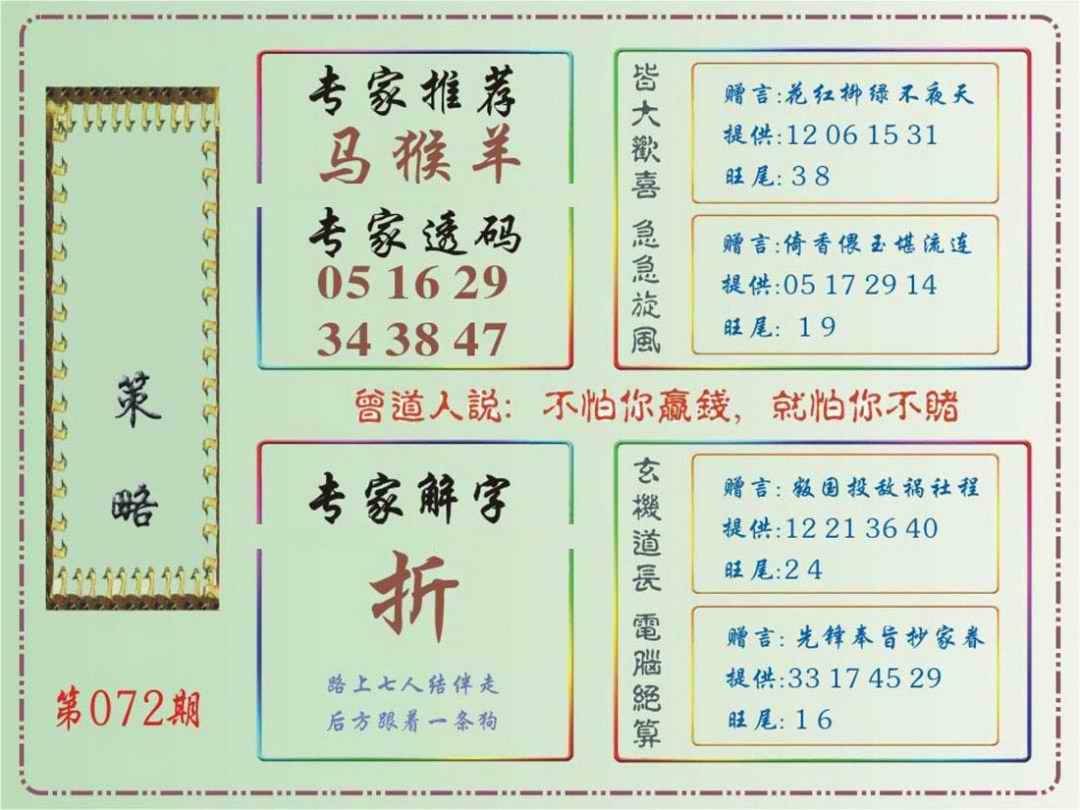 策略
第072期
专家推荐
马猴羊
专家透码
05 16 29
34 38 47
皆大歡喜
赠言:花红柳绿不夜天
提供:12 06 15 31
旺尾: 3 8
急急旋風
赠言:倚香偎玉堪流连
提供:05 17 29 14
旺尾: 1 9
曾道人説: 不怕你贏錢, 就怕你不賭
专家解字
折
路上七人结伴走
后方跟着一条狗
玄機道長
赠言: 叛国投敌祸社程
提供:12 21 36 40
旺尾:2 4
電腦絕算
赠言: 先锋奉旨抄家眷
提供:33 17 45 29
旺尾: 1 6